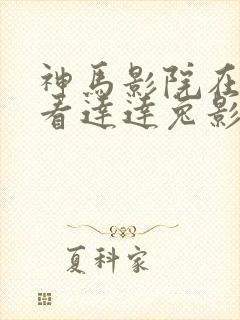 神馬影院在
看達達兔影
夏科家